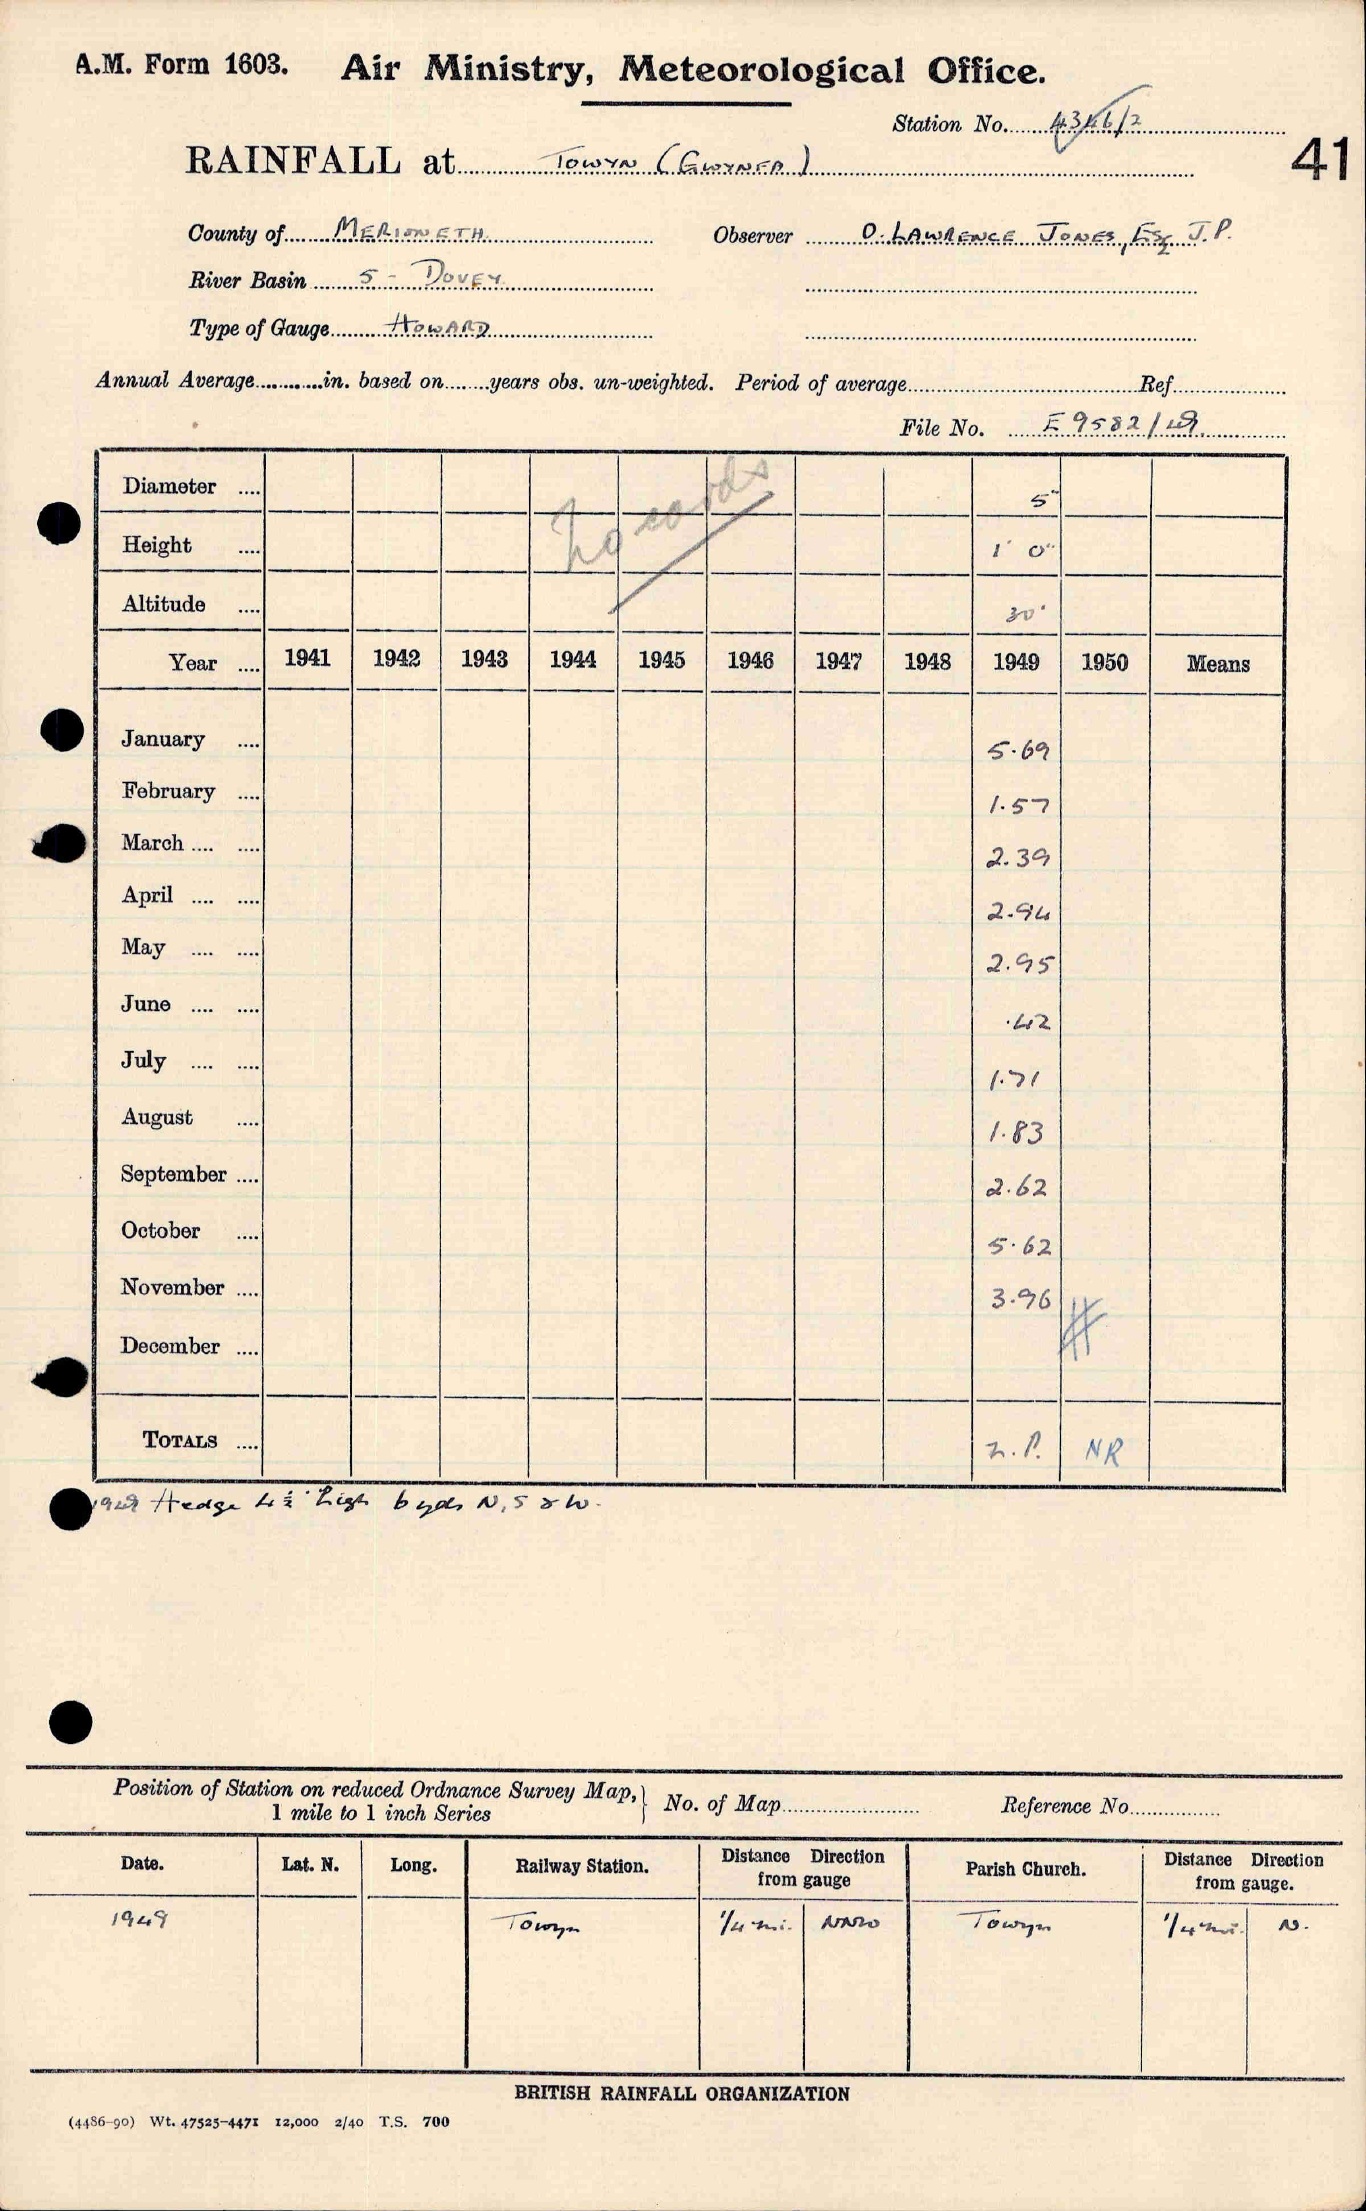 A.M. Form 1603. Air Ministry, Meteorological Office.
Station No. 4346/2
41
RAINFALL at TOWYN (GWYNFA)
County of MERIONETH Observer O. LAWRENCE JONES, ESQ J.P.
River Basin 5 - DOVEY
Type of Gauge HOWARD
Annual Average............in. based on........years obs. un-weighted. Period of average........ Ref........
File No. E 9582/49.
No cards
Diameter .... 5"
Height .... 1' 0"
Altitude .... 30'
Year .... 1941 1942 1943 1944 1945 1946 1947 1948 1949 1950 Means
January .... 5.69
February .... 1.57
March .... .... 2.39
April .... .... 2.94
May .... .... 2.95
June .... .... .42
July .... .... 1.71
August .... 1.83
September .... 2.62
October .... 5.62
November .... 3.96
December ....
TOTALS .... N.P. NR
1949 Hedge 4½' high 6 yds N, S & W.
Position of Station on reduced Ordnance Survey Map,
1 mile to 1 inch Series
No. of Map........ Reference No........
Date. Lat. N. Long. Railway Station. Distance Direction from gauge Parish Church. Distance Direction from gauge.
1949 Towyn 1/4 mi. NNW Towyn 1/4 mi. N.
BRITISH RAINFALL ORGANIZATION
(4486-90) Wt. 47525-4471 12,000 2/40 T.S. 700